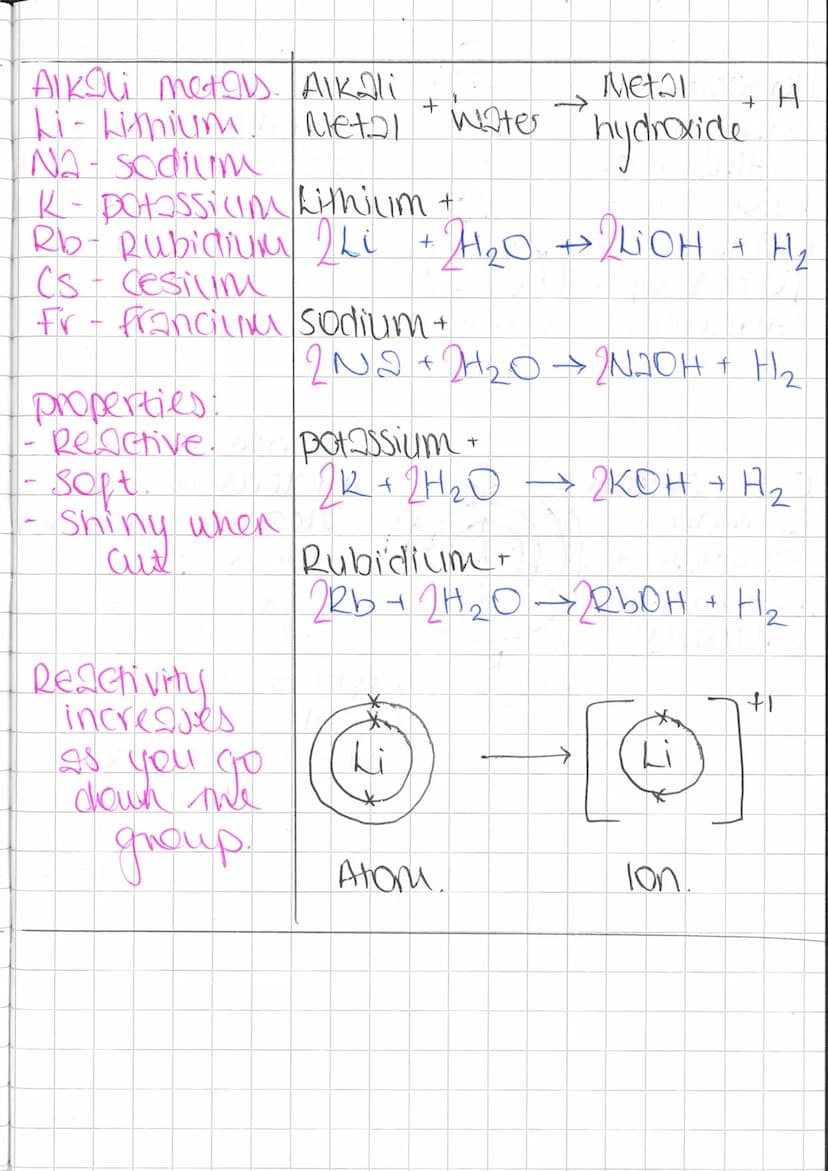 Alkali metals.
Li - Lithium.
Na - sodium
K - potassium
Rb - Rubidium
Cs - Cesium
Fr - francium
properties:
- Reactive.
- Soft.
- Shiny when
cut.
Reactivity
increases
as you go
down the
group.
Alkali Metal + water → Metal hydroxide + H
Lithium +
2Li + 2H₂O → 2LiOH + H₂
Sodium +
2Na + 2H₂O → 2NaOH + H₂
potassium +
2K + 2H₂O → 2KOH + H₂
Rubidium +
2Rb + 2H₂O → 2RbOH + H₂
Li → [Li]⁺¹
Atom. Ion.